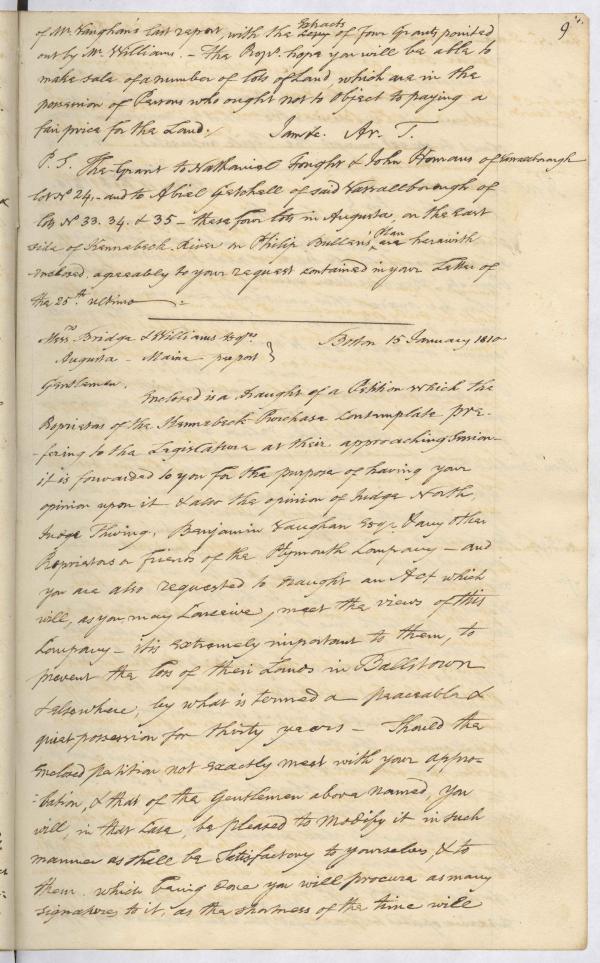 9
of Mr. Vaughan's last report, with the Extracts of four Grants pointed
out by Mr. Williams. – the Propr. hope you will be able to
make sale of a number of lots of Land, which are in the
possession of Persons who ought not to object to paying a
fair price for the Land./ I am &c. Ar. T.
P.S. The Grant to Nathaniel Fought & John Homans of Vassalborough
lot No 24, – and to Abiel Getchell of said Vassallborough of
lots No 33. 34. & 35 – these four lots in Augusta, on the East
side of Kennebeck River on Philip Bullen's Plan are herewith
enclosed, agreeably to your request contained in your Letter of
the 25th ultimo
Messrs Bridge & Williams Esqrs Boston 15 January 1810
Augusta – Maine pr post
Gentlemen.
Enclosed is a draught of a Petition which the
Proprietors of the Kennebeck Purchase Contemplate pre-
-fering to the Legislature at their approaching Session–
it is forwarded to you for the purpose of having your
opinion upon it & also the opinion of Judge North,
Judge Thwing, Benjamin Vaughan Esqr. & any other
Proprietors or friends of the Plymouth Company – and
you are also requested to draught an Act which
will, as you may Conceive, meet the views of this
Company – it is Extremely important to them, to
prevent the loss of their Lands in Ballstown
& elsewhere, by what is termed a peaceable &
quiet possession for thirty years – Should the
Enclosed petition not exactly meet with your appro-
-bation, & that of the Gentlemen above named, you
will, in that Case, be pleased to modify it in such
manner as shall be Satisfactory to yourselves, & to
them, which being done you will procure as many
signatures to it, as the shortness of the time will